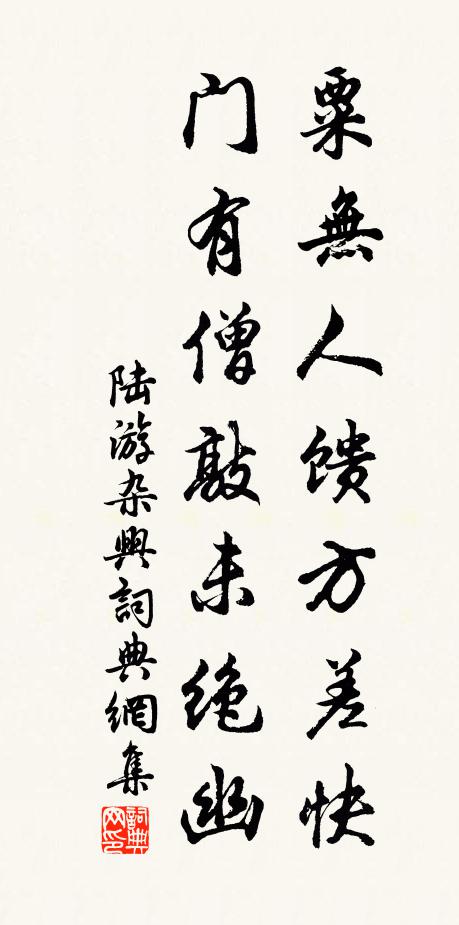 粟無人馈方差快
门有僧敲未绝幽
陆游杂興詞典網集
詞典网印